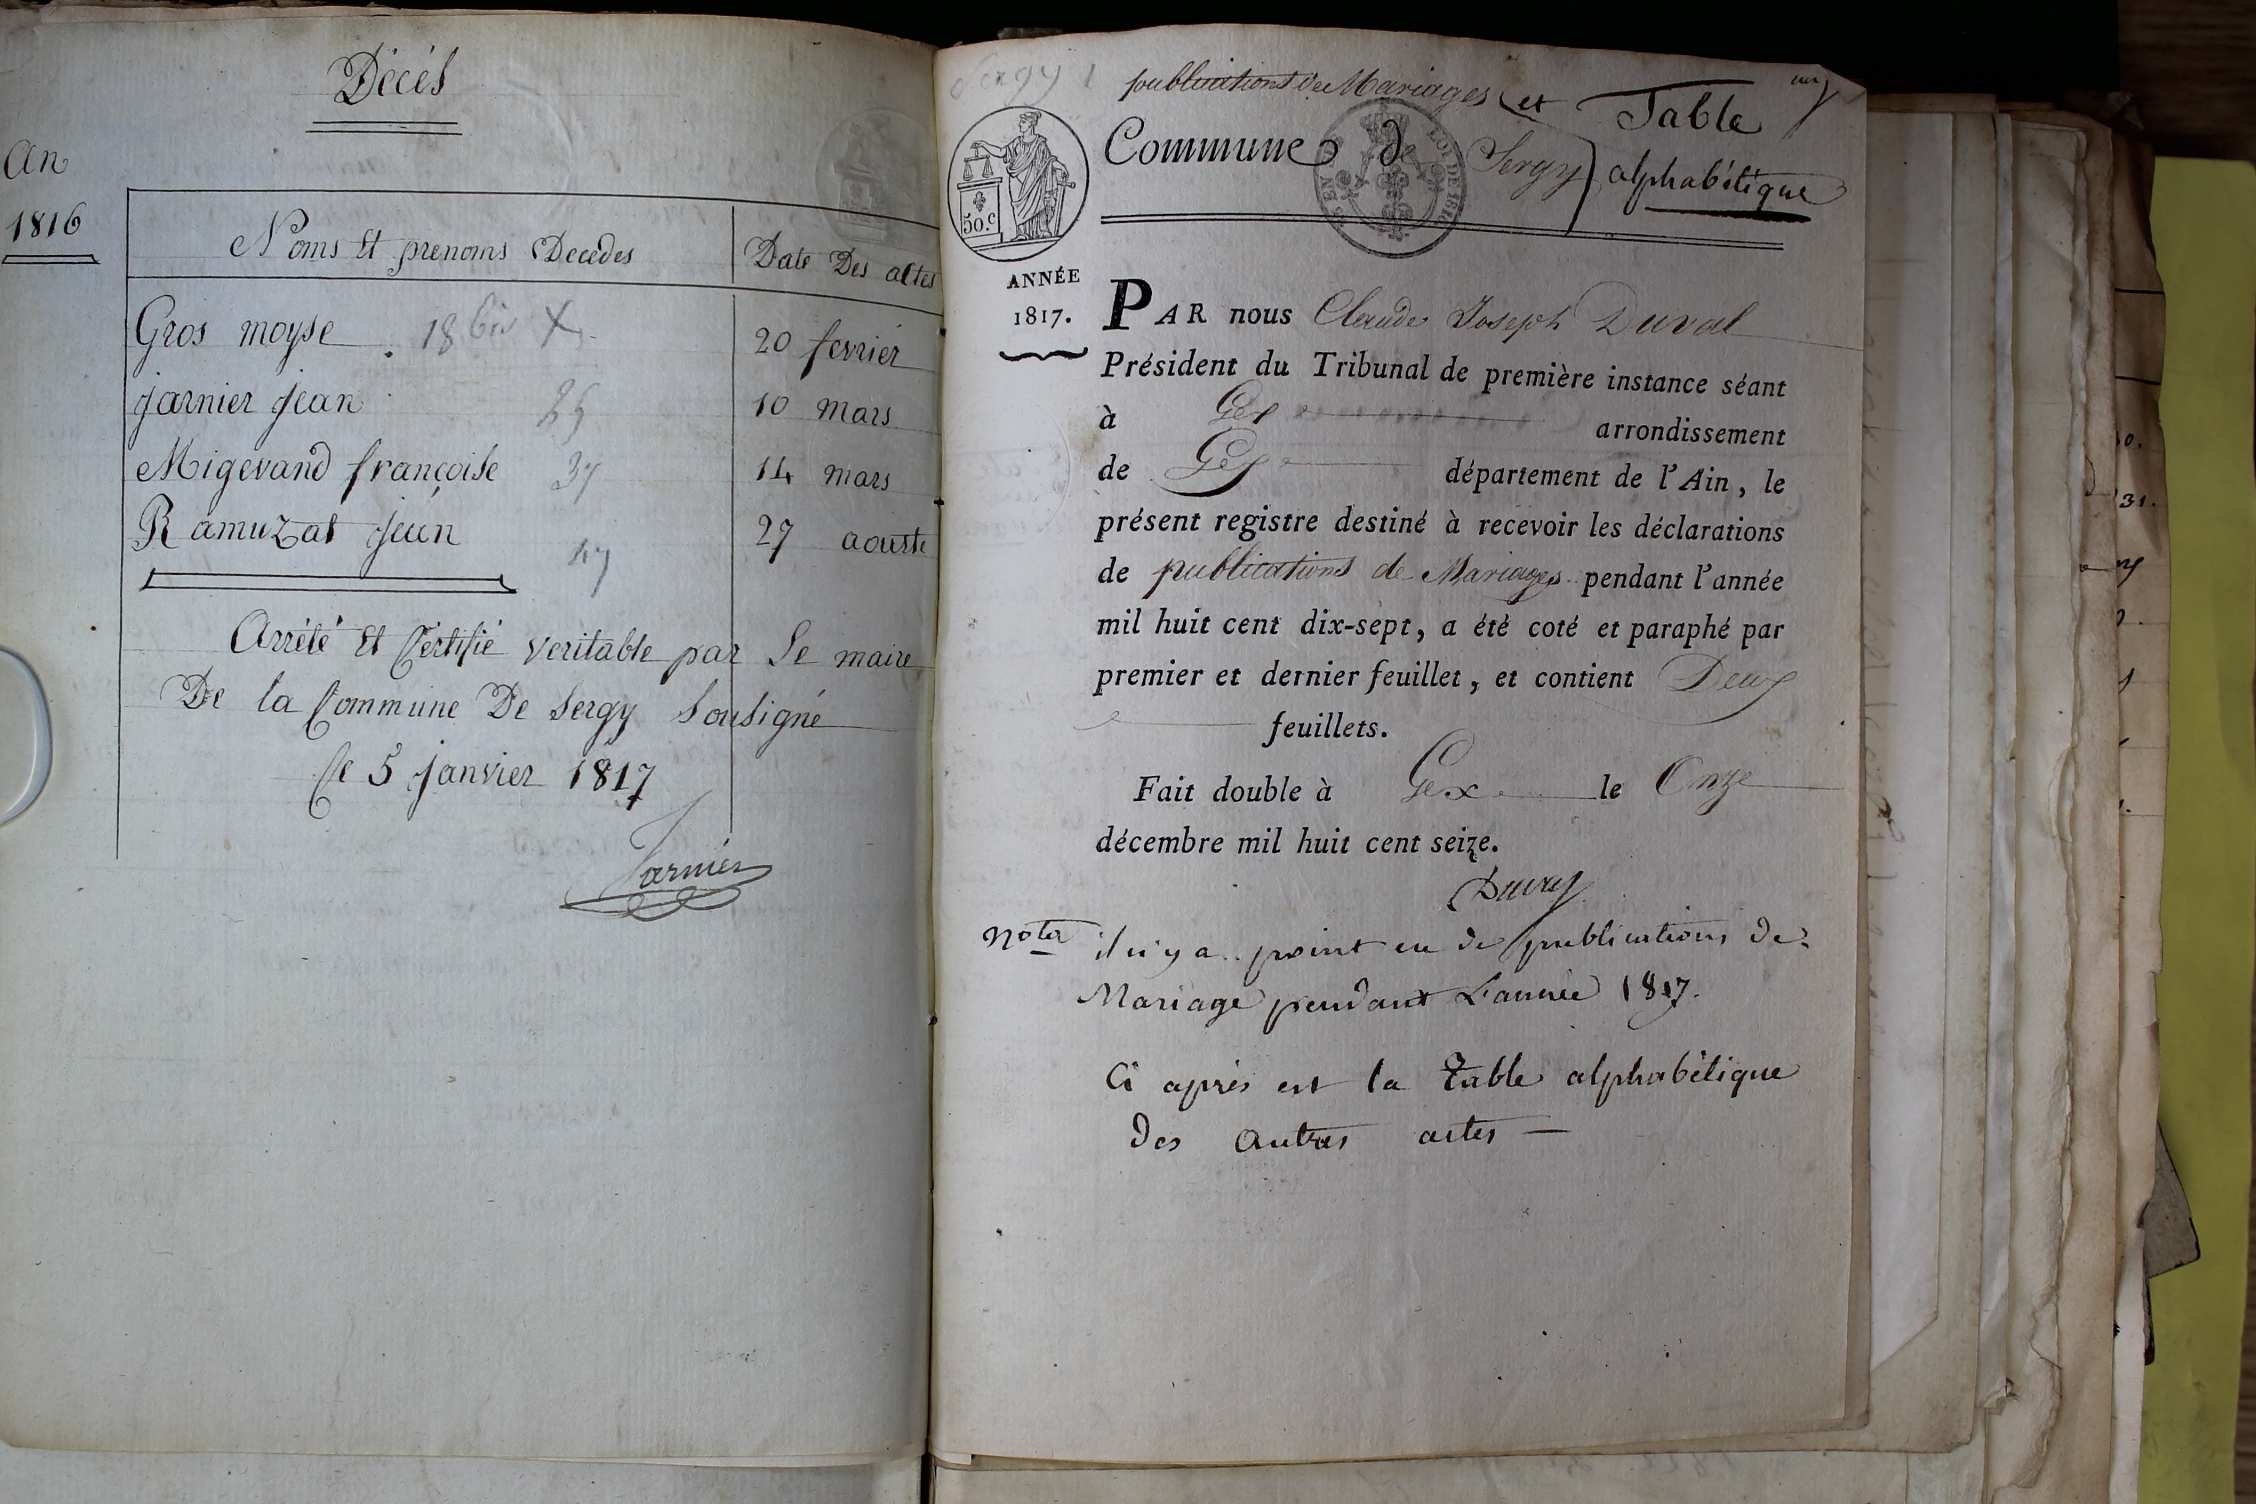 Décés
An
1816
Noms Et prenoms Decedes
Date Des actes
Gros moyse 18 bis
20 fevrier
jarnier jean 25
10 mars
Migevand françoise 37
14 mars
Ramuzat jean 47
27 aouste
Arrété Et Certifié veritable par Le maire
De la Commune De Sergy Sousigné
Ce 5 janvier 1817
Jarnier
Sergy
publications de Mariages et Table
alphabétique
Commune de Sergy
50.c
ANNÉE
1817.
PAR nous Claude Joseph Duval
Président du Tribunal de première instance séant
à Gex arrondissement
de Gex département de l'Ain, le
présent registre destiné à recevoir les déclarations
de publications de Mariages pendant l'année
mil huit cent dix-sept, a été coté et paraphé par
premier et dernier feuillet, et contient Deux
feuillets.
Fait double à Gex le Onze
décembre mil huit cent seize.
Duval
Nota il n'y a point eu de publications de
Mariage pendant L'année 1817.
Ci après est la Table alphabétique
des autres actes